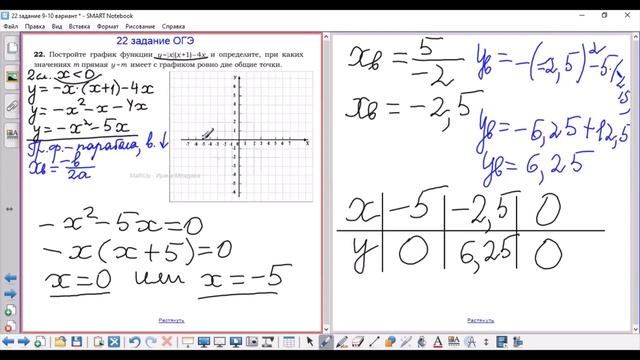 22 задание 9-10 вариант * - SMART Notebook
Файл Правка Вид Вставка Формат Инструменты Дополнения Справка
22 задание ОГЭ
22. Постройте график функции y=|x|(x+1)−4x и определите, при каких
значениях m прямая y=m имеет с графиком ровно две общие точки.
2сл. x<0
y=-x·(x+1)-4x
y=-x²-x-4x
y=-x²-5x
Г.ф.-парабола, в.↓
xв=-в/2a
-x²-5x=0
-x(x+5)=0
x=0 или x=-5
Растянуть
xв=5/-2
xв=-2,5
yв=-(-2,5)²-5·(
yв=-6,25+12,5
yв=6,25
x -5 -2,5 0
y 0 6,25 0
Растянуть